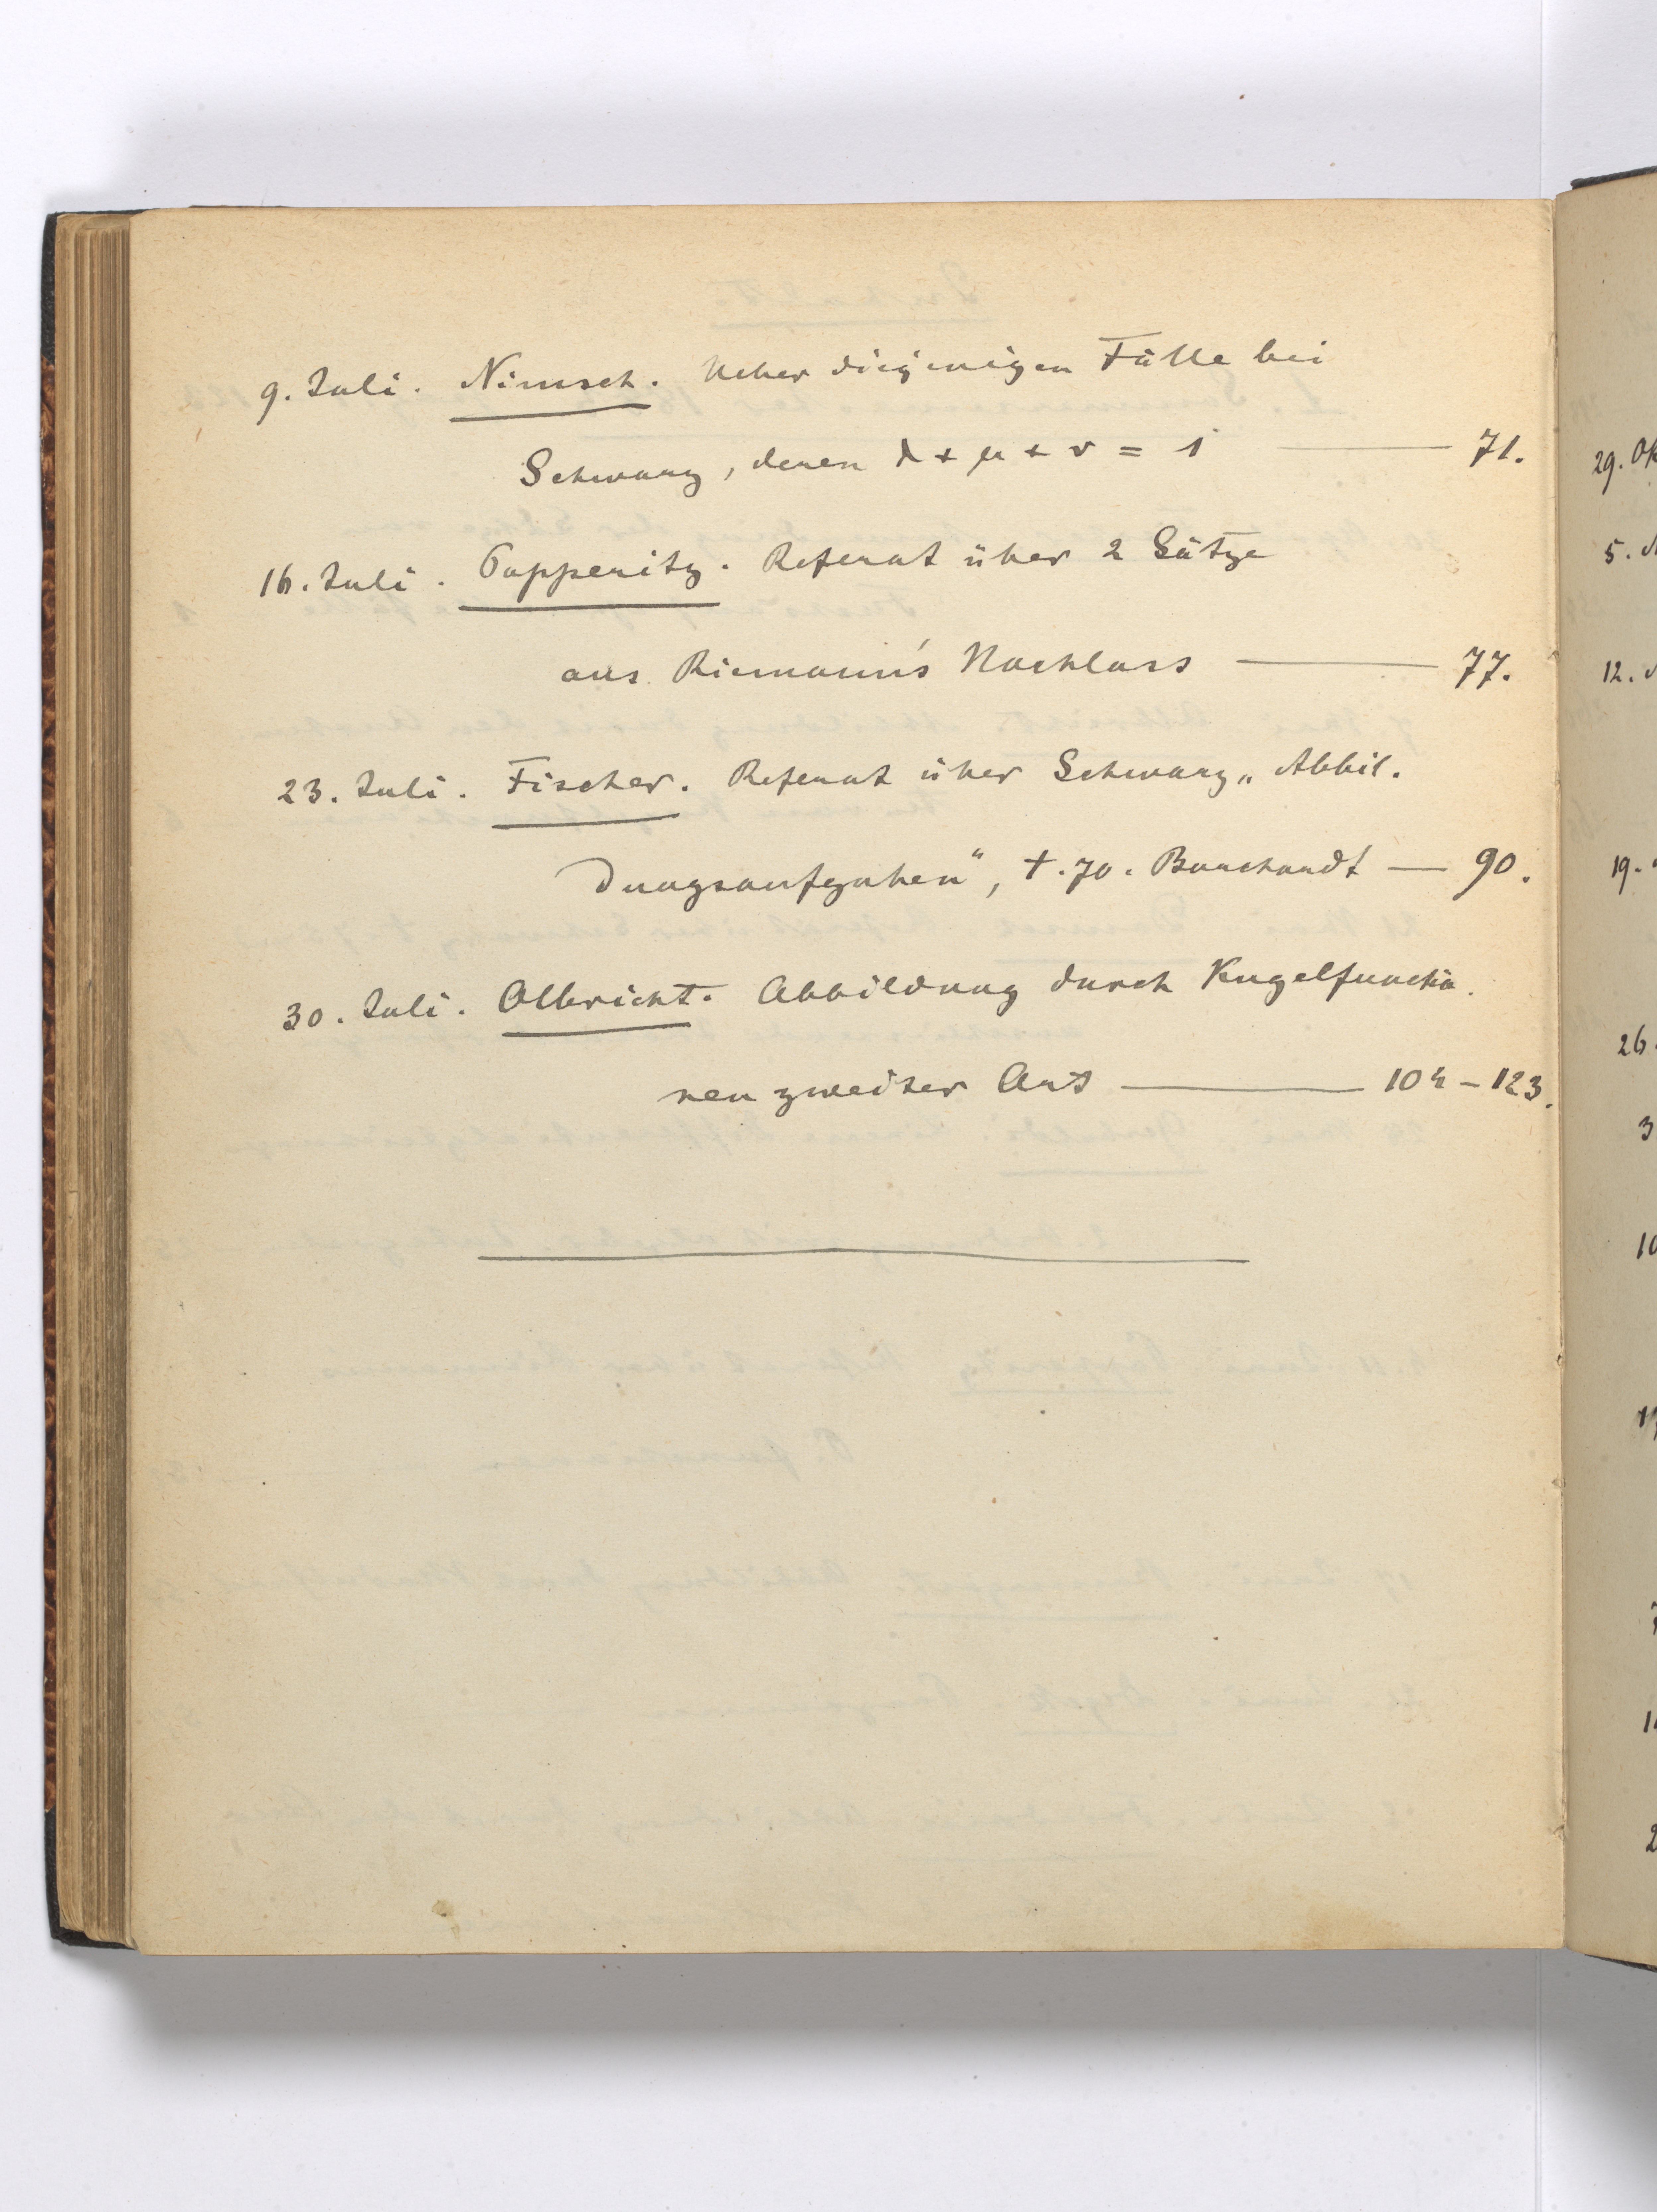 9. Juli. Nimsch. Ueber diejenigen Fälle bei
Schwarz, denen λ + μ + ν = 1 — 71.
16. Juli. Papperitz. Referat über 2 Sätze
aus Riemann's Nachlass — 77.
23. Juli. Fischer. Referat über Schwarz „Abbil-
dungsaufgaben“, t. 70. Borchardt — 90.
30. Juli. Olbricht. Abbildung durch Kugelfunctio-
nen zweiter Art — 104 – 123.
29. Ok
5.
12.
19.
26.
3
10
17